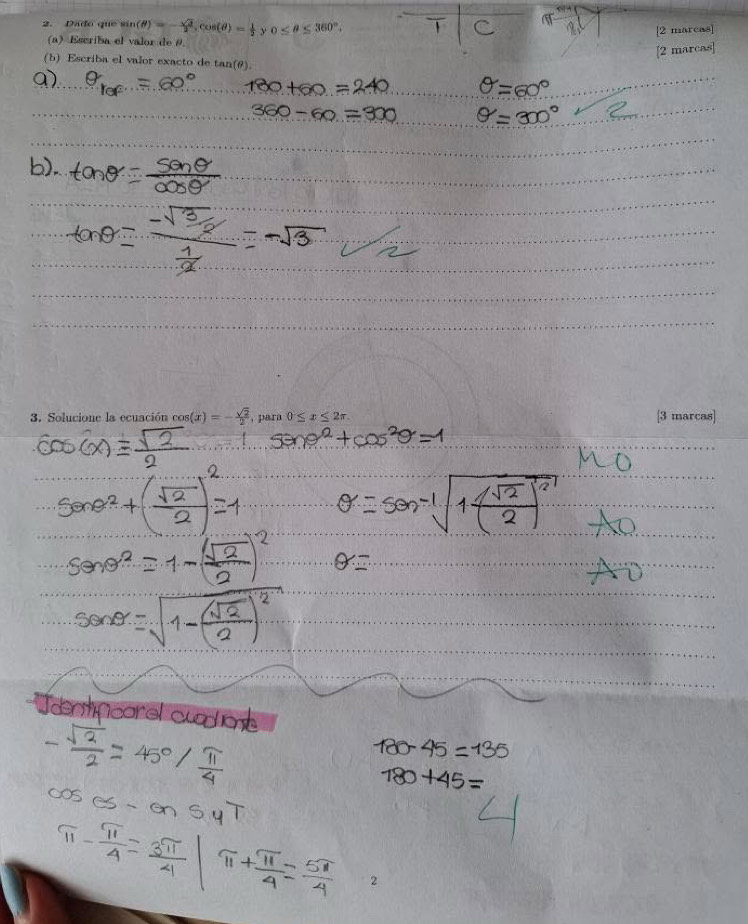 T | C
2. Dado que sin(θ) = -√3/2, cos(θ) = 1/2 y 0 ≤ θ ≤ 360°.
(a) Escriba el valor de θ. [2 marcas]
(b) Escriba el valor exacto de tan(θ). [2 marcas]
a) θref = 60° 180 + 60 = 240 θ = 60°
360 - 60 = 300 θ = 300° ✓ 2
b). tanθ = senθ/cosθ
tanθ = (-√3/2)/(1/2) = -√3 ✓ 2
3. Solucione la ecuación cos(x) = -√2/2, para 0 ≤ x ≤ 2π. [3 marcas]
cos(x) = √2/2 senθ² + cos²θ = 1
M0
senθ² + (√2/2)² = 1 θ = sen⁻¹√(1-(√2/2)²)
A0
senθ² = 1 - (√2/2)² θ =
A0
senθ = √(1-(√2/2)²)
Identificar el cuadrante
-√2/2 = 45° / π/4 180 - 45 = 135
180 + 45 =
cos es - en S y T
4
π - π/4 = 3π/4 | π + π/4 = 5π/4
2